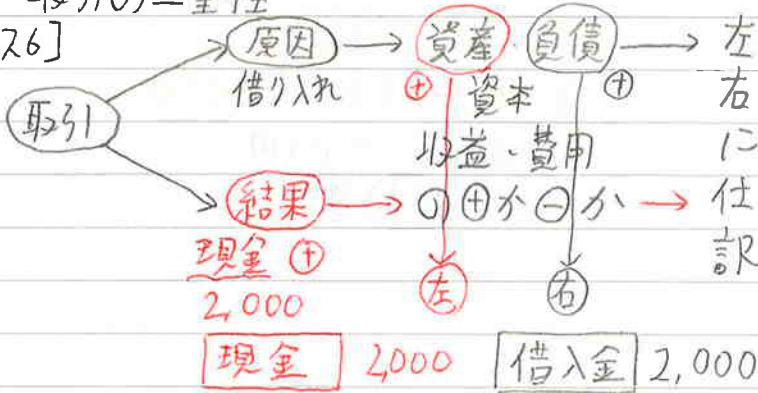 取引の二重性
26]
取引
原因 → 資産・負債 → 左右に仕訳
借り入れ ⊕ 資本 ⊕
収益・費用
結果 → の⊕か⊖か →
現金 ⊕
2,000 左 右
現金 2,000 借入金 2,000